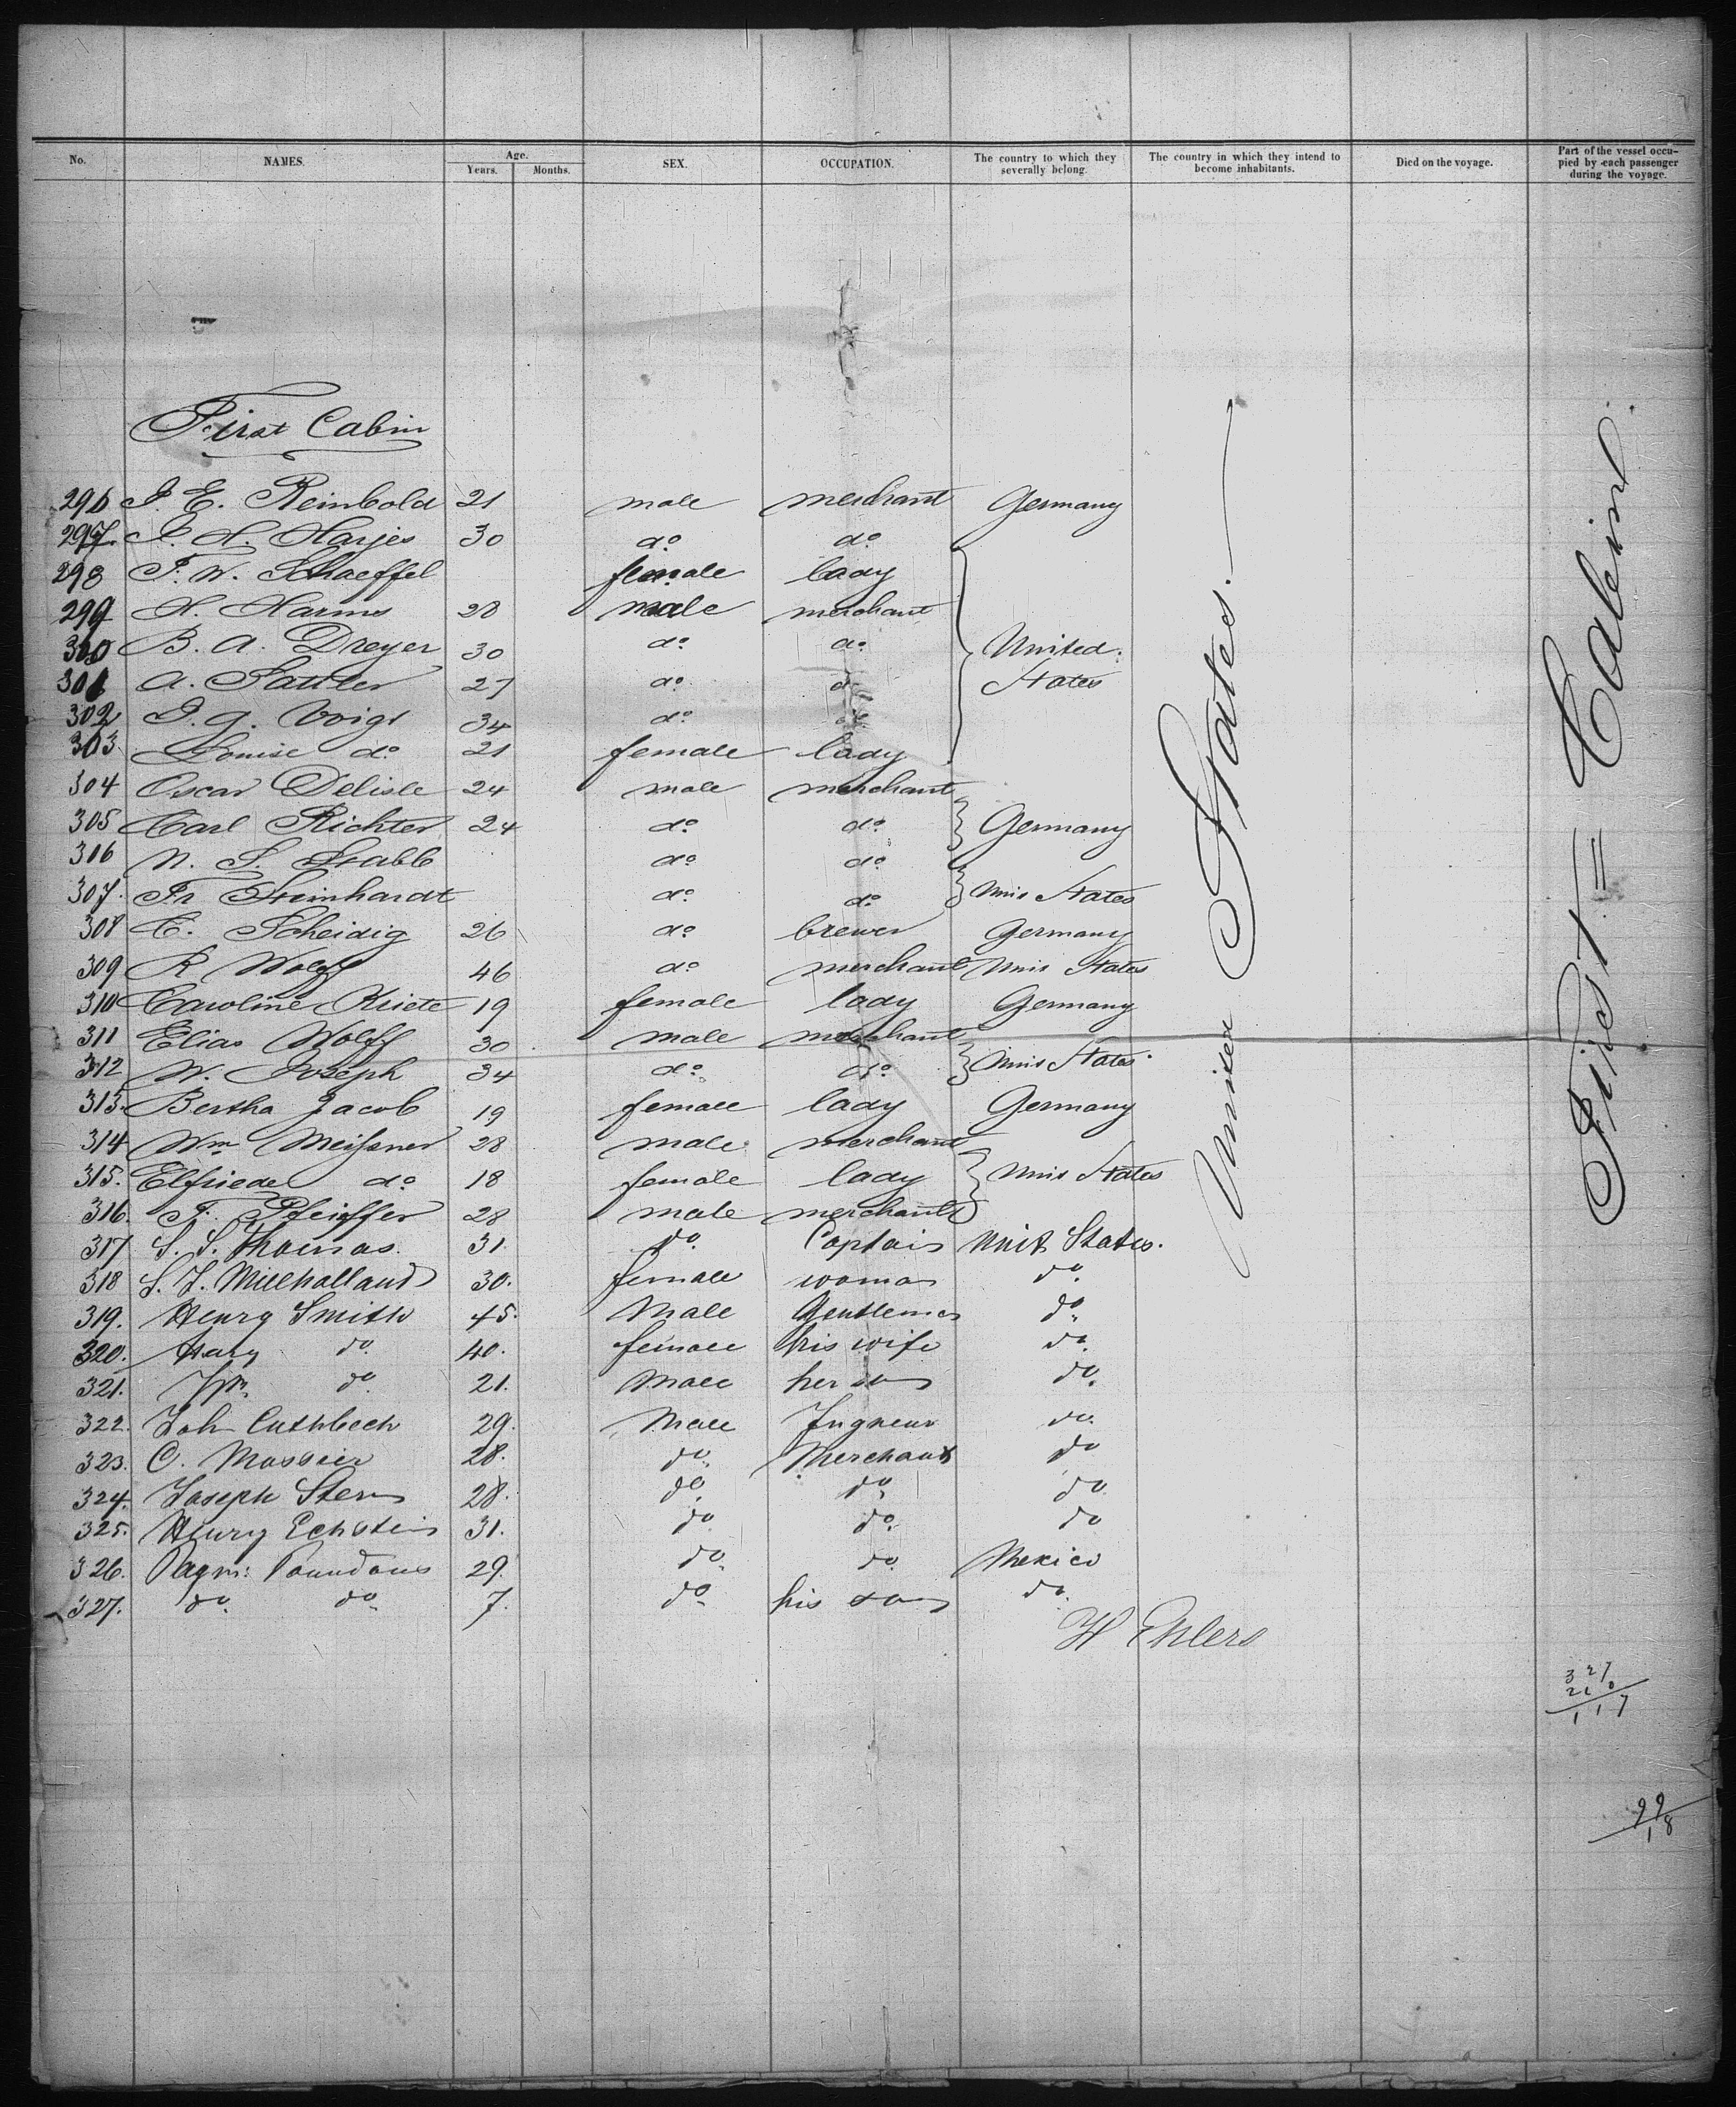 No. NAMES. Age. Years. Months. SEX. OCCUPATION. The country to which they severally belong. The country in which they intend to become inhabitants. Died on the voyage. Part of the vessel occupied by each passenger during the voyage.
First Cabin
296 J. E. Reinbold 21 male merchant Germany
297. J. H. Harjes 30 do do
298 F. W. Schaeffel female lady
299 H. Harms 28 male merchant
300 B. A. Dreyer 30 do do United
301 A. Sattler 27 do do States
302 J. G. Voigt 34 do do
303 Louise do 21 female lady
304 Oscar Delisle 24 male merchant
305 Carl Richter 24 do do Germany
306 N. S. Stabb do do
307. Fr Steinhardt do do Unis States
308 C. Scheidig 26 do brewer Germany
309 R Wolff 46 do merchant Unis States
310 Caroline Kriete 19 female lady Germany
311 Elias Wolff 30 male merchant
312 W. Joseph 34 do do Unis States
313. Bertha Jacob 19 female lady Germany
314 Wm Meißner 28 male merchant
315. Elfriede do 18 female lady Unis States
316. F. Pfeiffer 28 male merchant
317 S. S. Thomas. 31. do Captain Unit States.
318 S. J. Millholland 30. female woman do
319. Henry Smith 45. Male Gentleman do
320. Mary do 40. female his wife do
321. Wm. do 21. Male her son do
322. Joh Cuthbech 29. Male do
323. C. Mossier 28. do Merchant do
324. Joseph Stern 28. do do do
325. Henry Echstein 31. do do do
326. do do 29. Mexico
327. do do 7. do his son do
United States.
First = Cabin.
H Ehlers
327
210
117
99
18